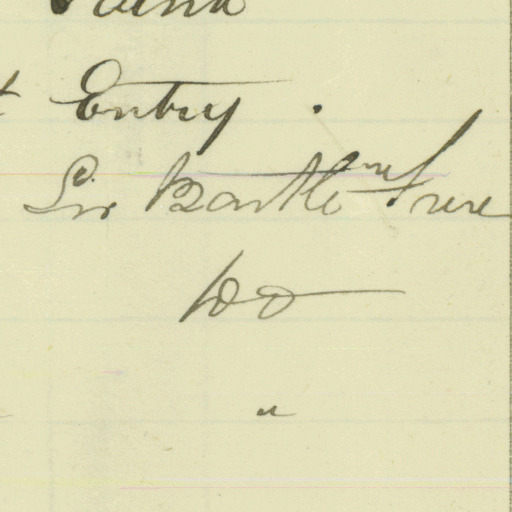 Entry.
Sir Bartle Frere
Do
"